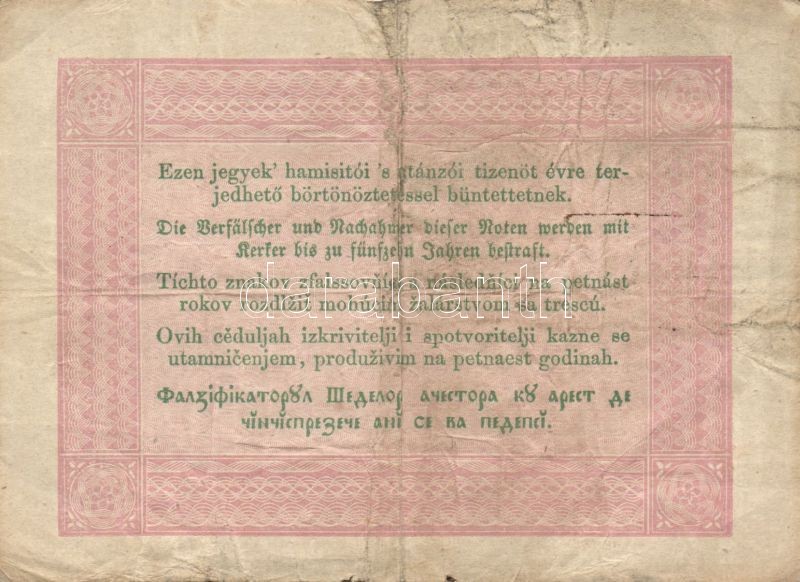 Ezen jegyek' hamisitói 's utánzói tizenöt évre ter-
jedhető börtönöztetéssel büntettetnek.
Die Verfälscher und Nachahmer dieser Noten werden mit
Kerker bis zu fünfzehn Jahren bestraft.
Tíchto znakov zfaissovňíci a následňíci na petnást
rokov rozdížiť mohúcím žalárstvom sa trescú.
darabanth
Ovih cĕduljah izkrivitelji i spotvoritelji kazne se
utamničenjem, produživim na petnaest godinah.
Фалꙁіфікаторꙋл Шеделор ачестора кꙋ арест де
чінчіспреꙁече ані се ва педепсі.